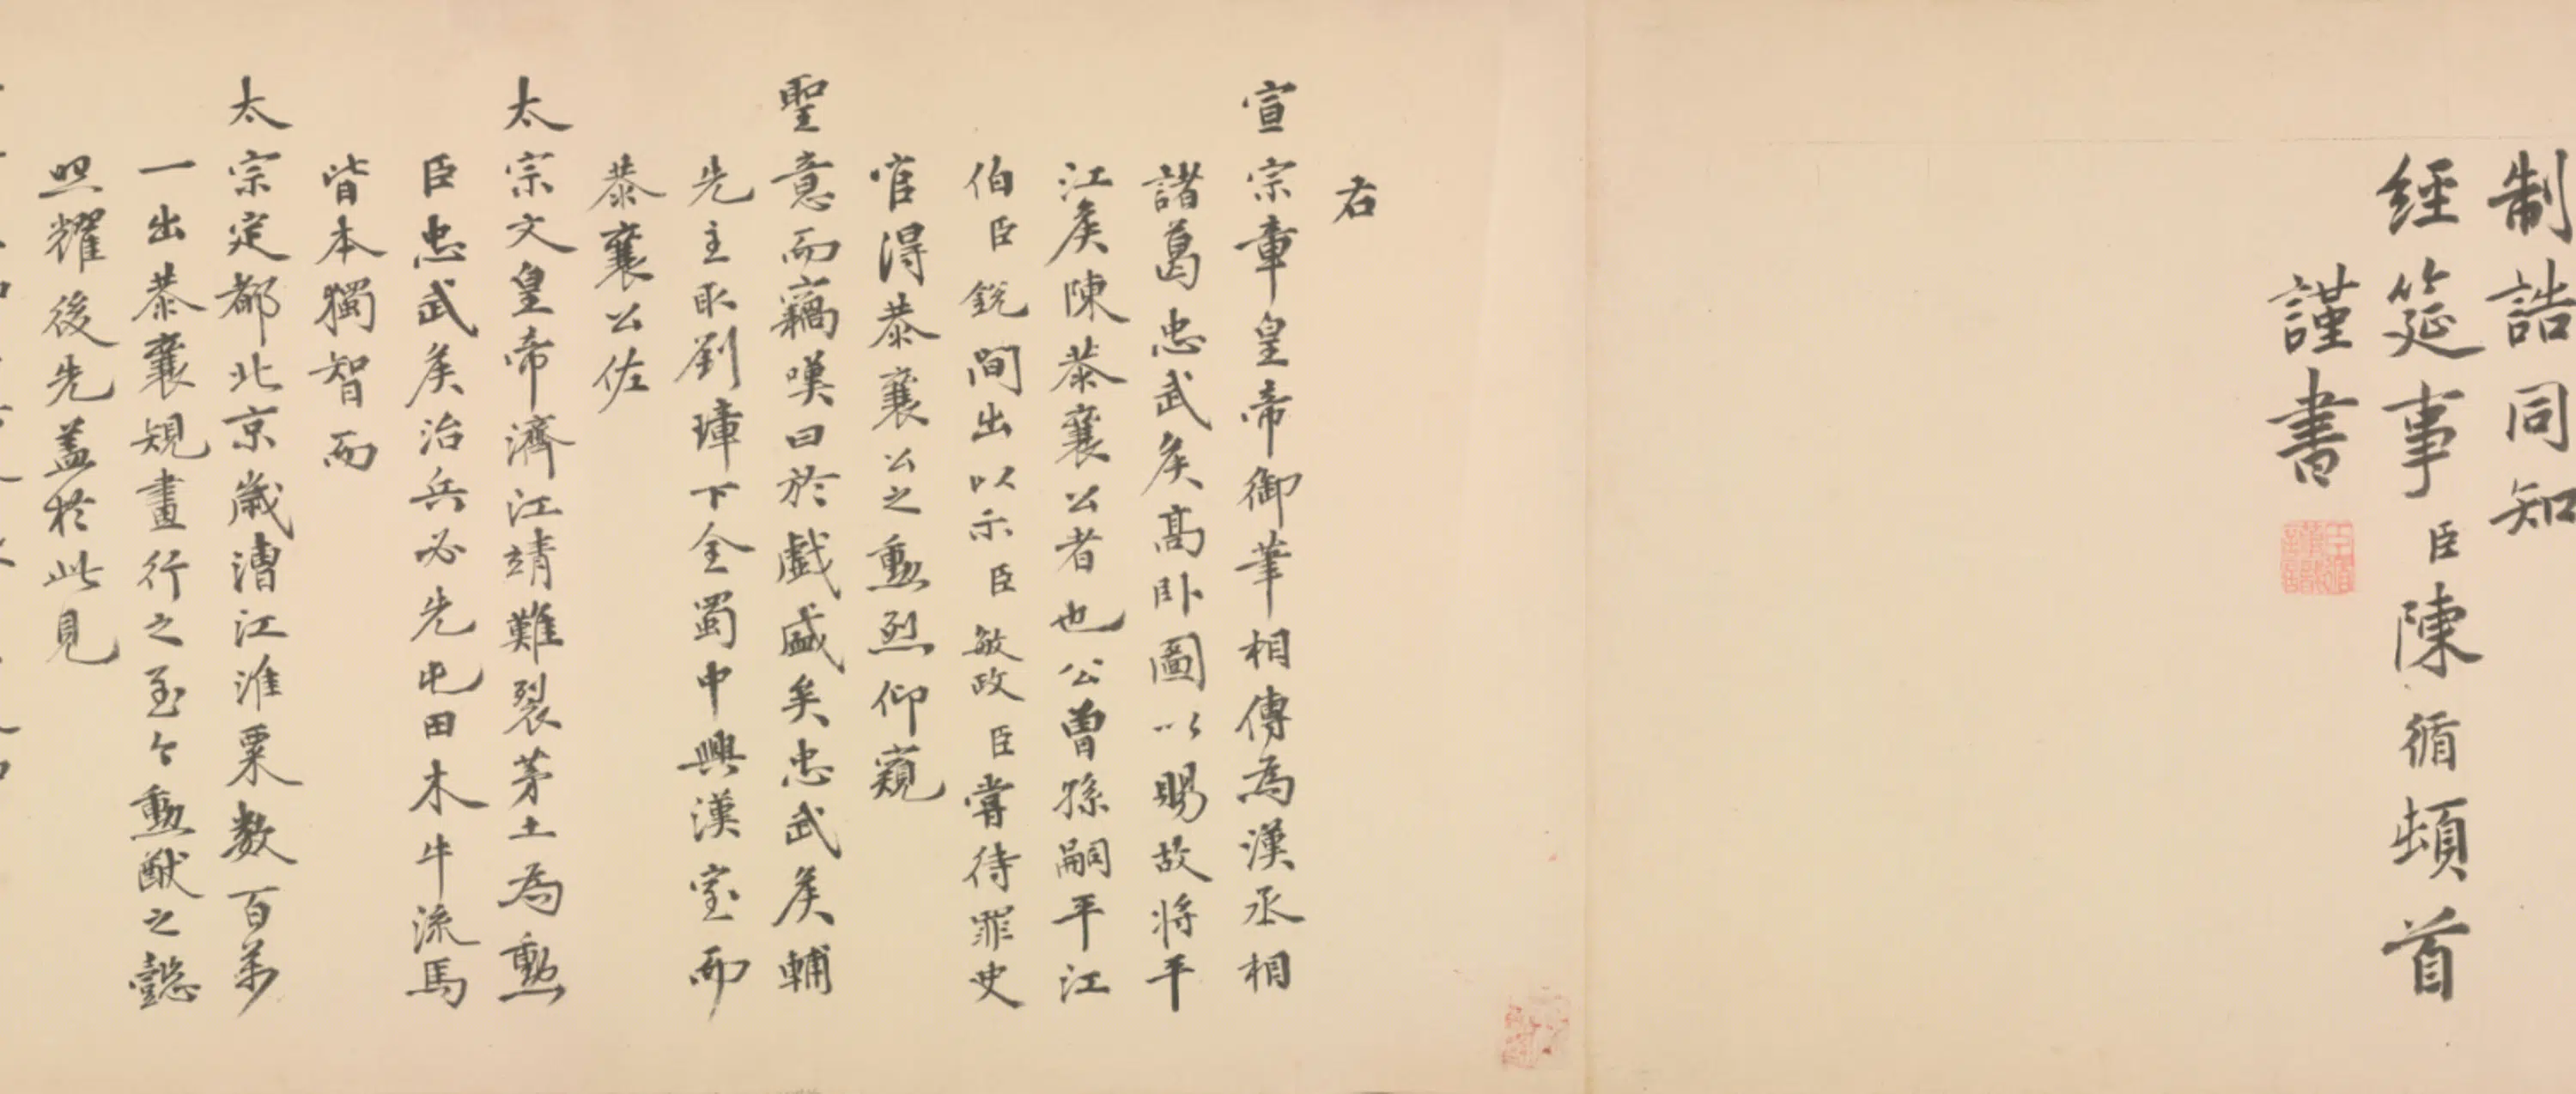 制誥同知
經筵事臣陳循頓首
謹書
右
宣宗章皇帝御筆相傳為漢丞相
諸葛忠武矦髙卧圖以賜故將平
江矦陳恭襄公者也公曾孫嗣平江
伯臣銳間出以示臣敏政臣甞待罪史
官得恭襄公之勳烈仰窺
聖意而竊嘆曰於戯盛矣忠武矦輔
先主取劉璋下全蜀中興漢室而
恭襄公佐
太宗文皇帝濟江靖難裂茅土為勳
臣忠武矦治兵必先屯田木牛流馬
皆本獨智而
太宗定都北京歲漕江淮粟数百萬
一出恭襄規畫行之至今勳猷之懿
照耀後先蓋於此見